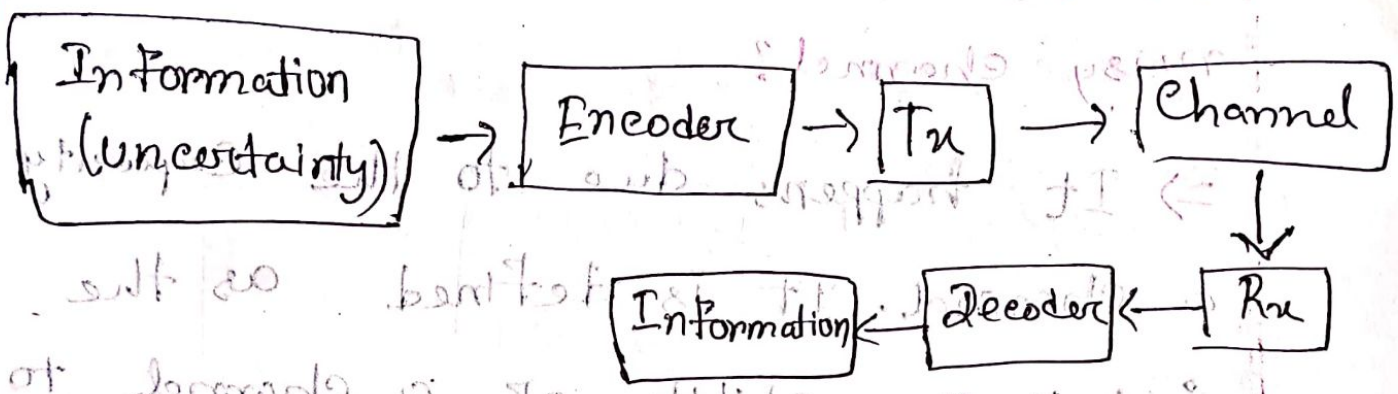 Information
(uncertainty)
Encoder
Tx
Channel
Rx
Decoder
Information